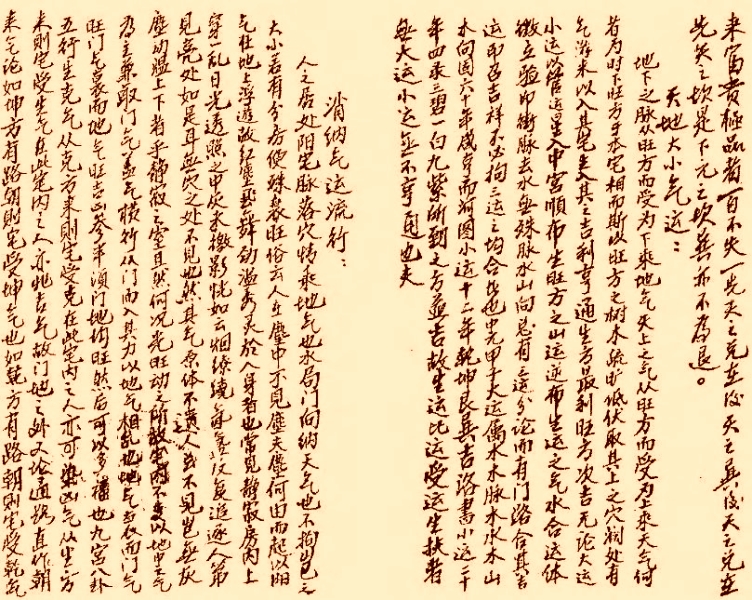 来富贵极品者一百不失一先天之兑在后天之巽后天之兑在
先天之坎是下元之坎巽亦不为退。
天地大小气运：
地下之脉从旺方而受为下乘地气天上之气从旺方而受为上来天气何
者为时下旺方乎本宅相而斯以旺方之树木疏旷低伏取其上之穴祠处有
气游来以入其宅主人其之吉利享通生方最利旺方次吉无论大运
小运以管运星入中宫顺布生旺方之山运逆布生运之气水合运体
微立验即衝脉去水無殊脉水山向总有三运分论而有门路合其吉
运即召吉祥不必拘三运之均合局也中元甲子大运属水水脉水水水山
水向固六十年咸享而河图小运十二年乾坤艮巽吉路書小运二十
年四录三碧一白九紫所到之方益吉故生运比运受运生扶者
無大运小运無不亨通也夫
消纳气运流行：
人之居处阳宅脉落穴情乘地气也水局门向纳天气也不拘邑之
大小若有分方便殊衰旺俗云人在塵中不见塵夫塵何由而起以阳
气在地上浮遊故红塵热辞动溢旁灵於人身者也常见静寂房内上
穿一乱日光透照之甲灰末微影恍如云烟缭绕氤氲反复追逐人第
见亮处如是耳無穴之处不见也然其气原体不遺人英不见岂無灰
塵动温上下者乎静寂之室且然何况光旺动之所故宅内不专以地中之气
为主兼取门气盖气横行从门而入其力以地气相乱地气吉衰而门气
旺门气衰而地气旺吉凶参半须门地均旺然后可以多福也九宫八卦
五行生克气从克方来则宅受克在此宅内之人亦可染凶气从生方
来则宅受生气在此宅内之人亦兆吉气故门地之外又论通路直作朝
来气论如坤方有路朝则宅受坤气也如乾方有路朝则宅受乾气